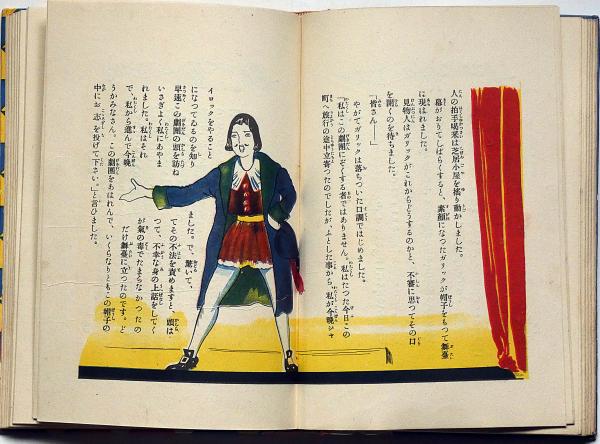 人の拍手喝采は芝居小屋を搖り動かしました。
幕がおりてしばらくすると、素顔になつたガリックが帽子をもつて舞臺
に現はれました。
見物人はガリックがこれからどうするのかと、不審に思つてその口
を開くのを待ちました。
「皆さん！」
やがてガリックは落ちついた口調ではじめました。
「私はこの劇團にぞくする者ではありません。私はたつた今日この
町へ旅行の途中立寄つたのでしたが、ふとした事から、私が今晩シャ
イロックをやること
になつてゐるのを知り
早速この劇團の頭を訪ね
ました。で、驚いて、
てその不法を責めますと、頭は
いさぎよく私にあやま
つて、不幸な身の上話をしてく
れました。私はそれ
が氣の毒でたまらなかつたの
で、私から進んで今晩
だけ舞臺に立つたのです。ど
うかみなさん。この劇團をあはれんで、いくらなりともこの帽子の
中にお志を投げて下さい。」と言ひました。